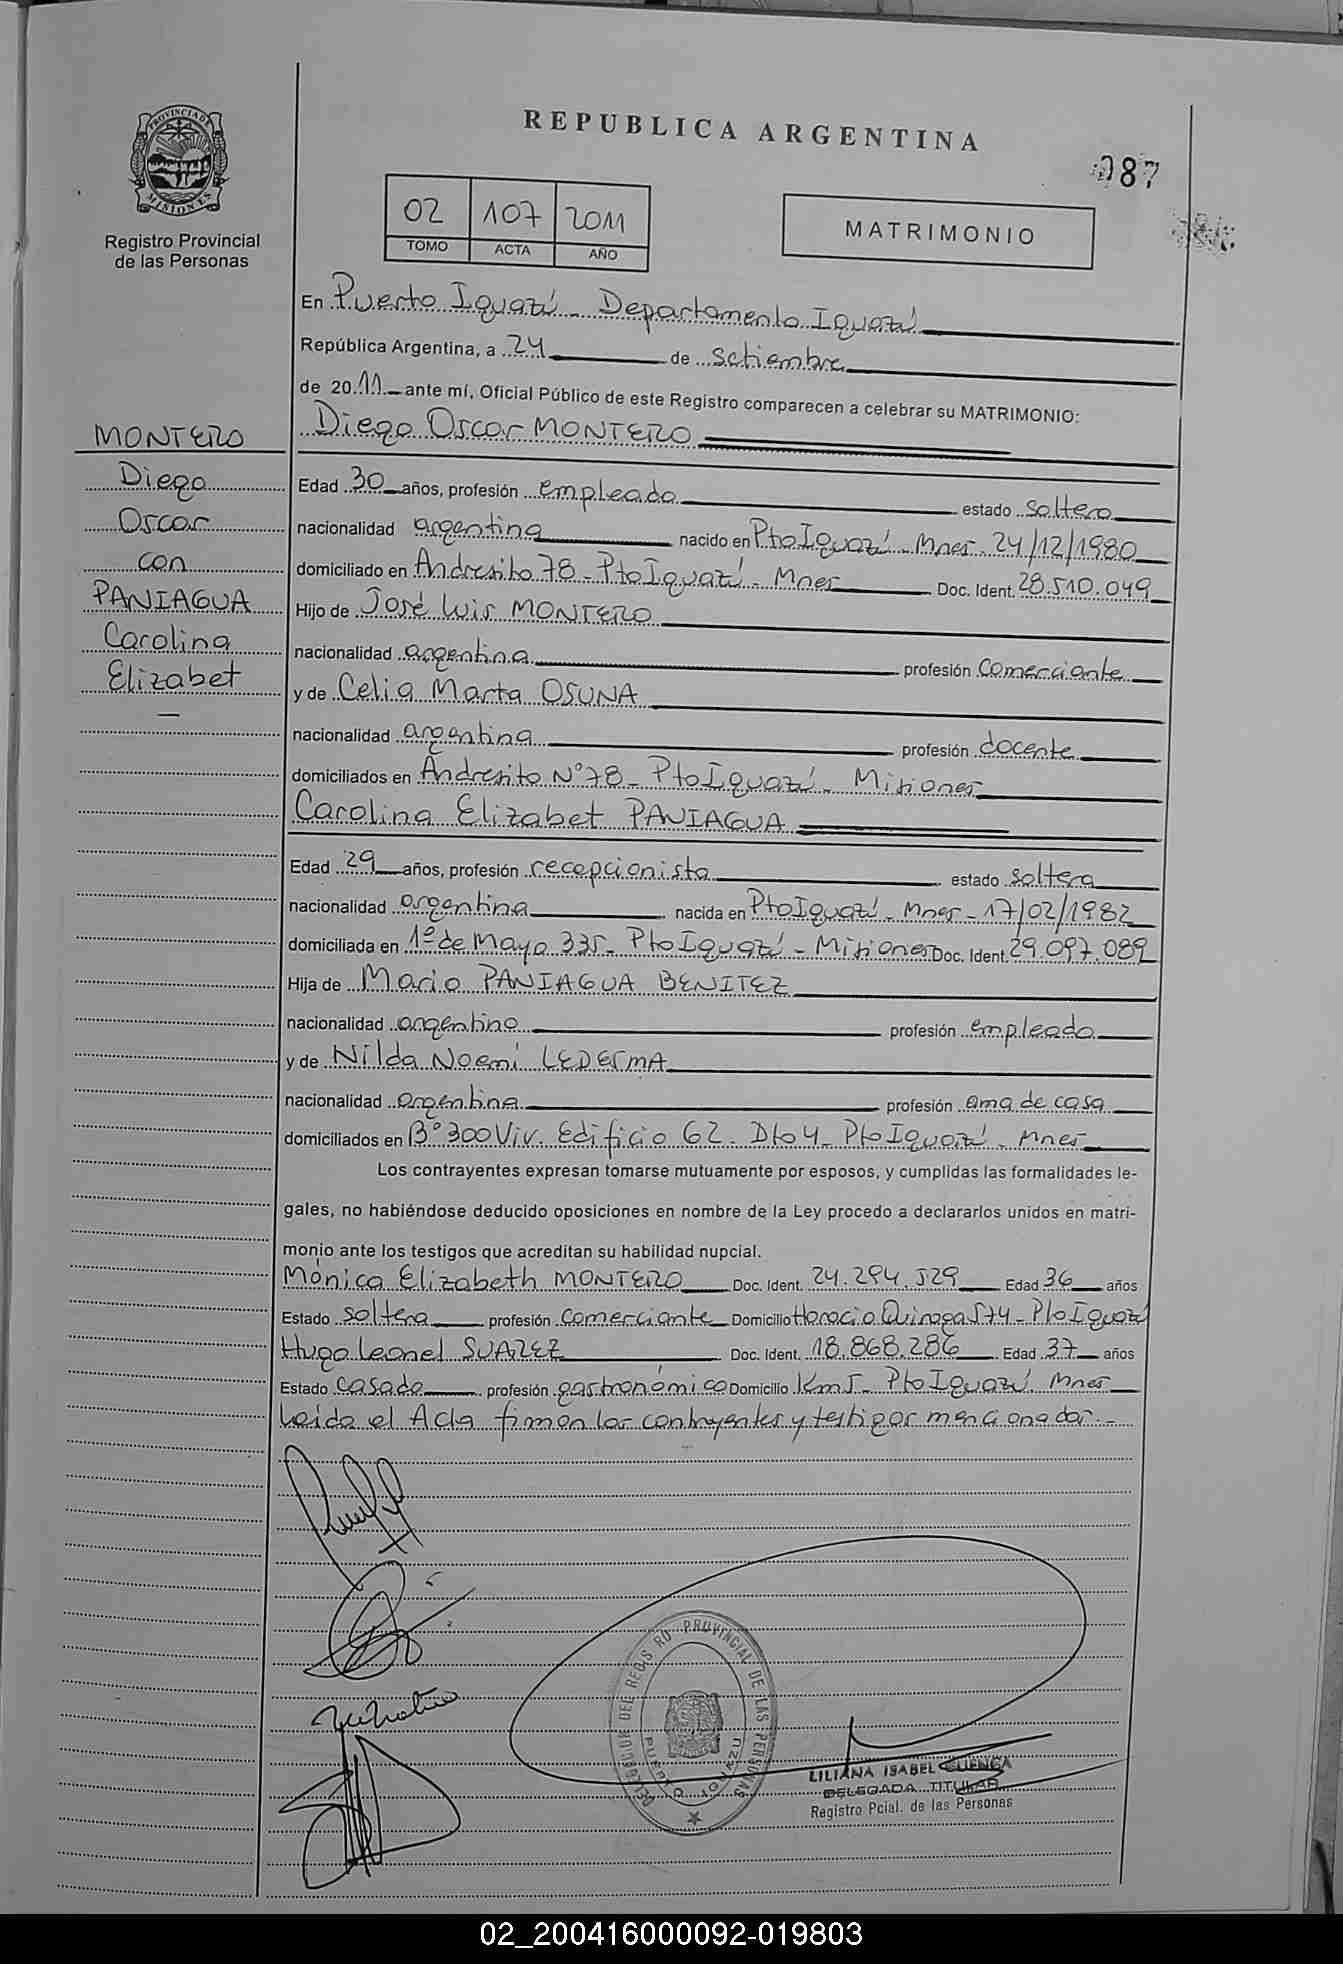 REPUBLICA ARGENTINA
087
PROVINCIA DE MISIONES
Registro Provincial
de las Personas
02 107 2011
TOMO ACTA AÑO
MATRIMONIO
En Puerto Iguazú - Departamento Iguazú
República Argentina, a 24 de setiembre
de 2011 ante mí, Oficial Público de este Registro comparecen a celebrar su MATRIMONIO:
MONTERO
Diego
Oscar
con
PANIAGUA
Carolina
Elizabet
Diego Oscar MONTERO
Edad 30 años, profesión empleado estado soltero
nacionalidad argentina nacido en Pto Iguazú - Mnes 24/12/1980
domiciliado en Andresito 78 - Pto Iguazú - Mnes Doc. Ident. 28.510.049
Hijo de José Luis MONTERO
nacionalidad argentina profesión comerciante
y de Celia Marta OSUNA
nacionalidad argentina profesión docente
domiciliados en Andresito N° 78 - Pto Iguazú - Misiones
Carolina Elizabet PANIAGUA
Edad 29 años, profesión recepcionista estado soltera
nacionalidad argentina nacida en Pto Iguazú - Mnes - 17/02/1982
domiciliada en 1° de Mayo 335 - Pto Iguazú - Misiones Doc. Ident. 29.097.089
Hija de Mario PANIAGUA BENITEZ
nacionalidad argentino profesión empleado
y de Nilda Noemí LEDERMA
nacionalidad argentina profesión ama de casa
domiciliados en B° 300 Viv. Edificio 62. Dto 4 - Pto Iguazú - Mnes
Los contrayentes expresan tomarse mutuamente por esposos, y cumplidas las formalidades le-
gales, no habiéndose deducido oposiciones en nombre de la Ley procedo a declararlos unidos en matri-
monio ante los testigos que acreditan su habilidad nupcial.
Mónica Elizabeth MONTERO Doc. Ident. 24.294.529 Edad 36 años
Estado soltera profesión comerciante Domicilio Horacio Quiroga 574 - Pto Iguazú
Hugo Leonel SUAREZ Doc. Ident. 18.868.286 Edad 37 años
Estado casado profesión gastronómico Domicilio Km 5 - Pto Iguazú. Mnes
Leída el Acta firman los contrayentes y testigos mencionados.-
DELEGACION DEL REGISTRO PROVINCIAL DE LAS PERSONAS
PUERTO IGUAZU
LILIANA ISABEL CUENCA
DELEGADA TITULAR
Registro Pcial. de las Personas
02_200416000092-019803